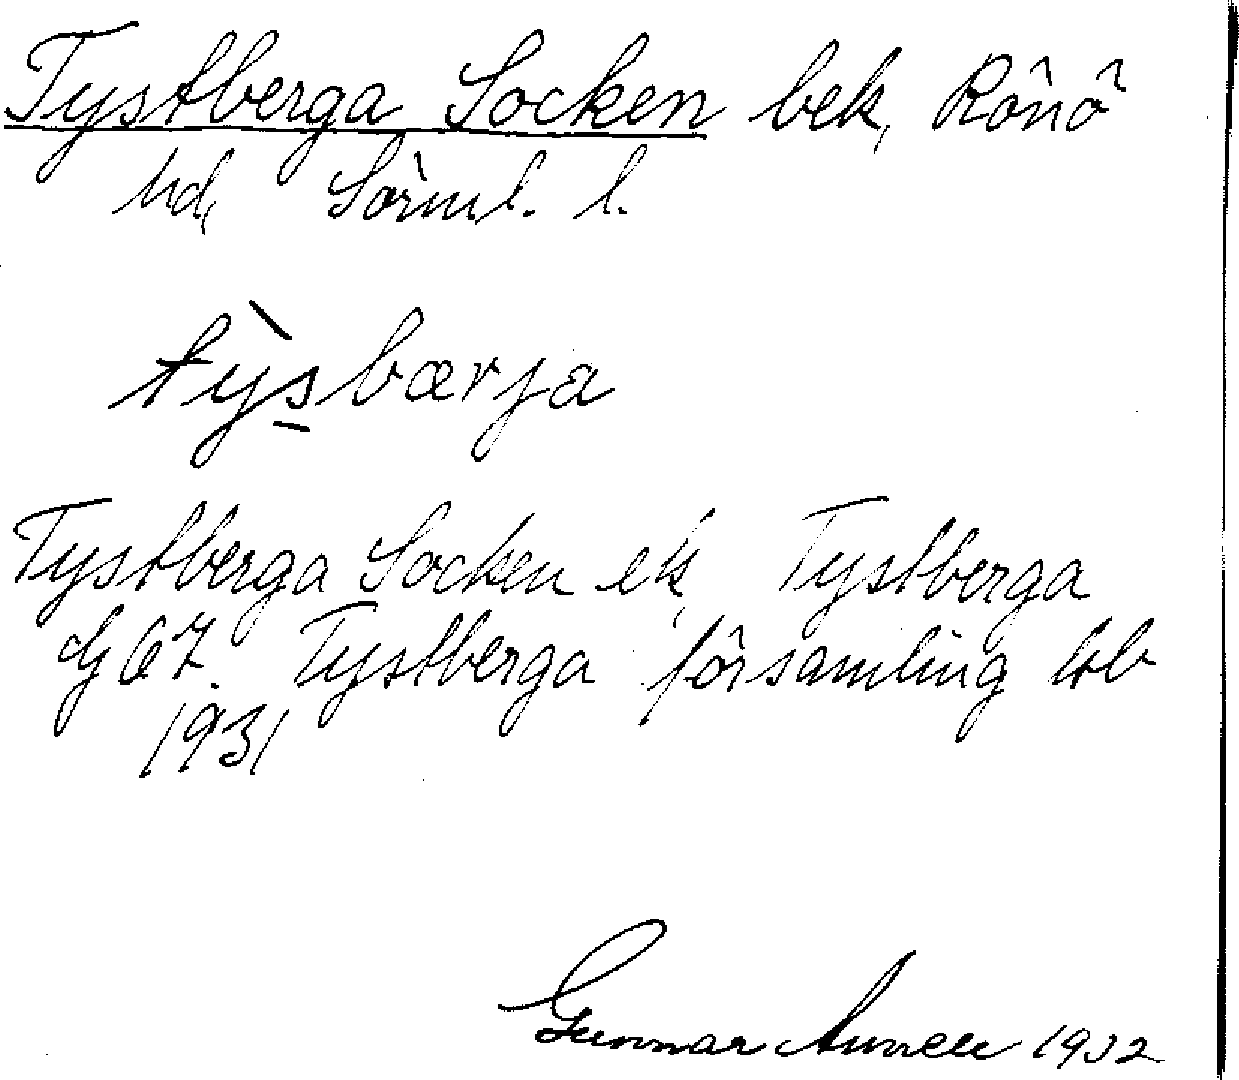 Tystberga Socken bek, Rönö
hd, Sörml. l.
tỳs̠bærja
Tystberga Socken ek, Tystberga
Gg 67. Tystberga församling
1931
Gunnar 1932